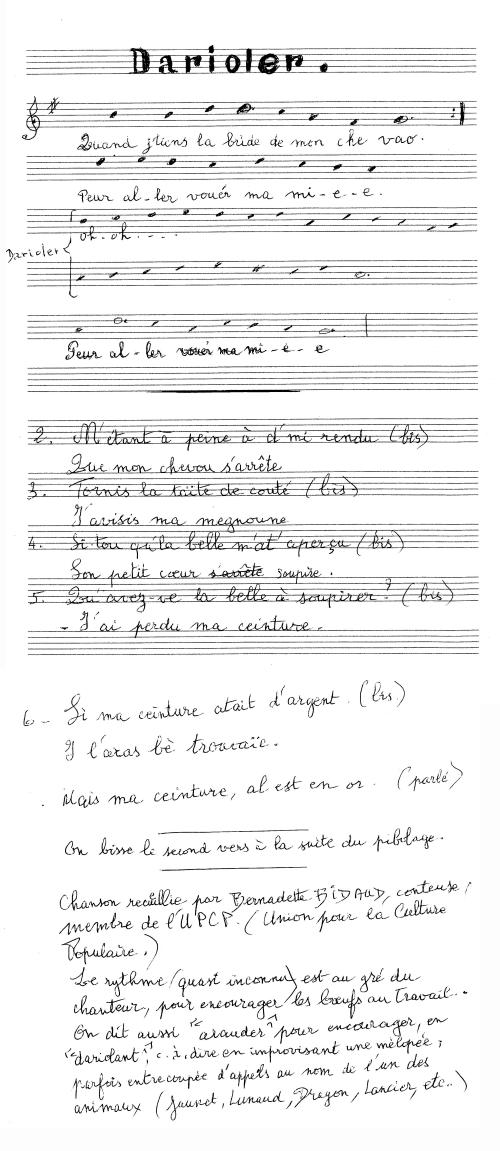 Darioler.
Quand j'tiens la bride de mon che vao.
Peur al-ler vouér ma mi-e-e.
Darioler
oh-oh....
Peur al-ler vouér ma mi-e-e
2. M'étant à peine à d'mi rendu (bis)
Que mon chevou s'arrête
3. Tornis la tàite de couté (bis)
J'avisis ma megnoune
4. Si tou qu'la belle m'at' aperçu (bis)
Son petit cœur s'arrête soupire.
5. Qu'avez-ve la belle à soupirer? (bis)
- J'ai perdu ma ceinture.
6 - Si ma ceinture atait d'argent. (bis)
I l'aras bè trouvaïe.
. Mais ma ceinture, al est en or. (parlé)
On bisse le second vers à la suite du pibolage.
Chanson recueillie par Bernadette BIDAUD, conteuse,
membre de l'UPCP. (Union pour la Culture
Populaire.)
Le rythme (quasi inconnu) est au gré du
chanteur, pour encourager les bœufs au travail..
On dit aussi "arauder" pour encourager, en
"dariolant", c.à.dire en improvisant une mélopée,
parfois entrecoupée d'appels au nom de l'un des
animaux (Jaunet, Lunaud, Dragon, Lancier, etc..)